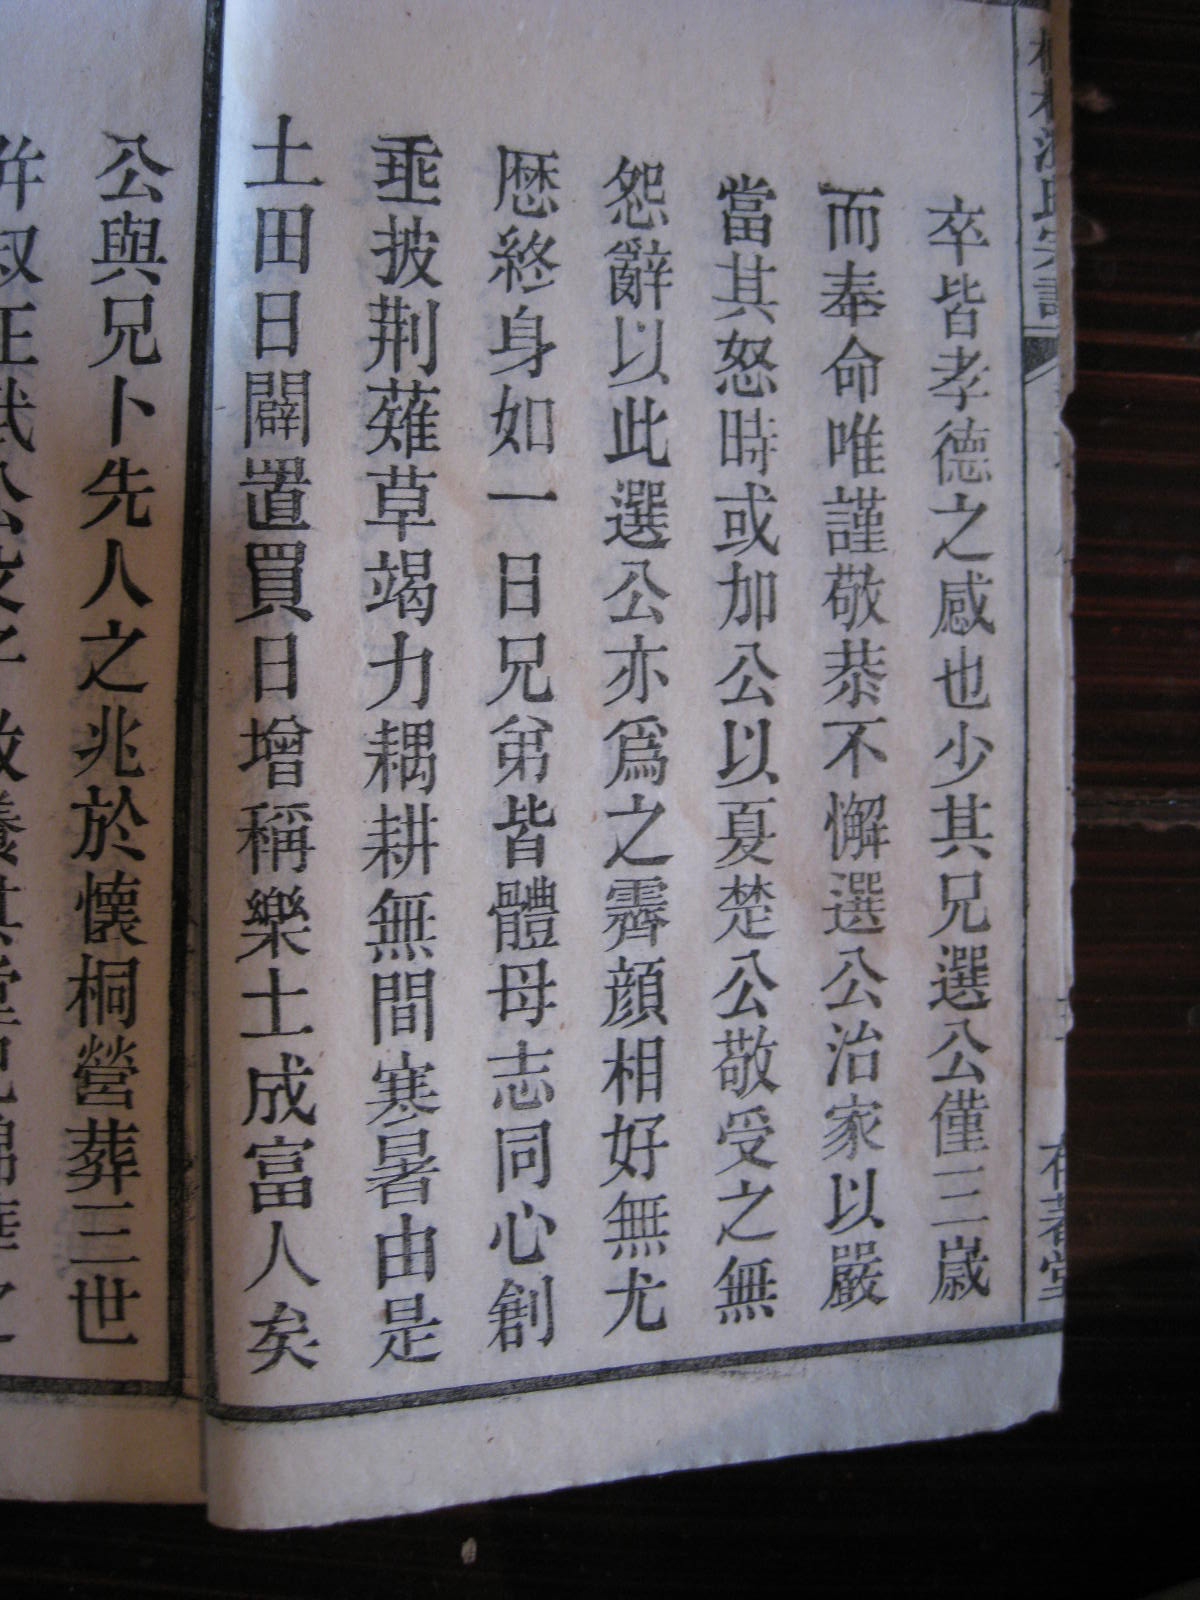 卒皆孝德之感也少其兄選公僅三歲
而奉命唯謹敬恭不懈選公治家以嚴
當其怒時或加公以夏楚公敬受之無
怨辭以此選公亦爲之霽顔相好無尤
歷終身如一日兄弟皆體母志同心創
埀披荆薙草竭力耦耕無間寒暑由是
土田日闢置買日增稱樂土成富人矣
公與兄卜先人之兆於懷桐營葬三世